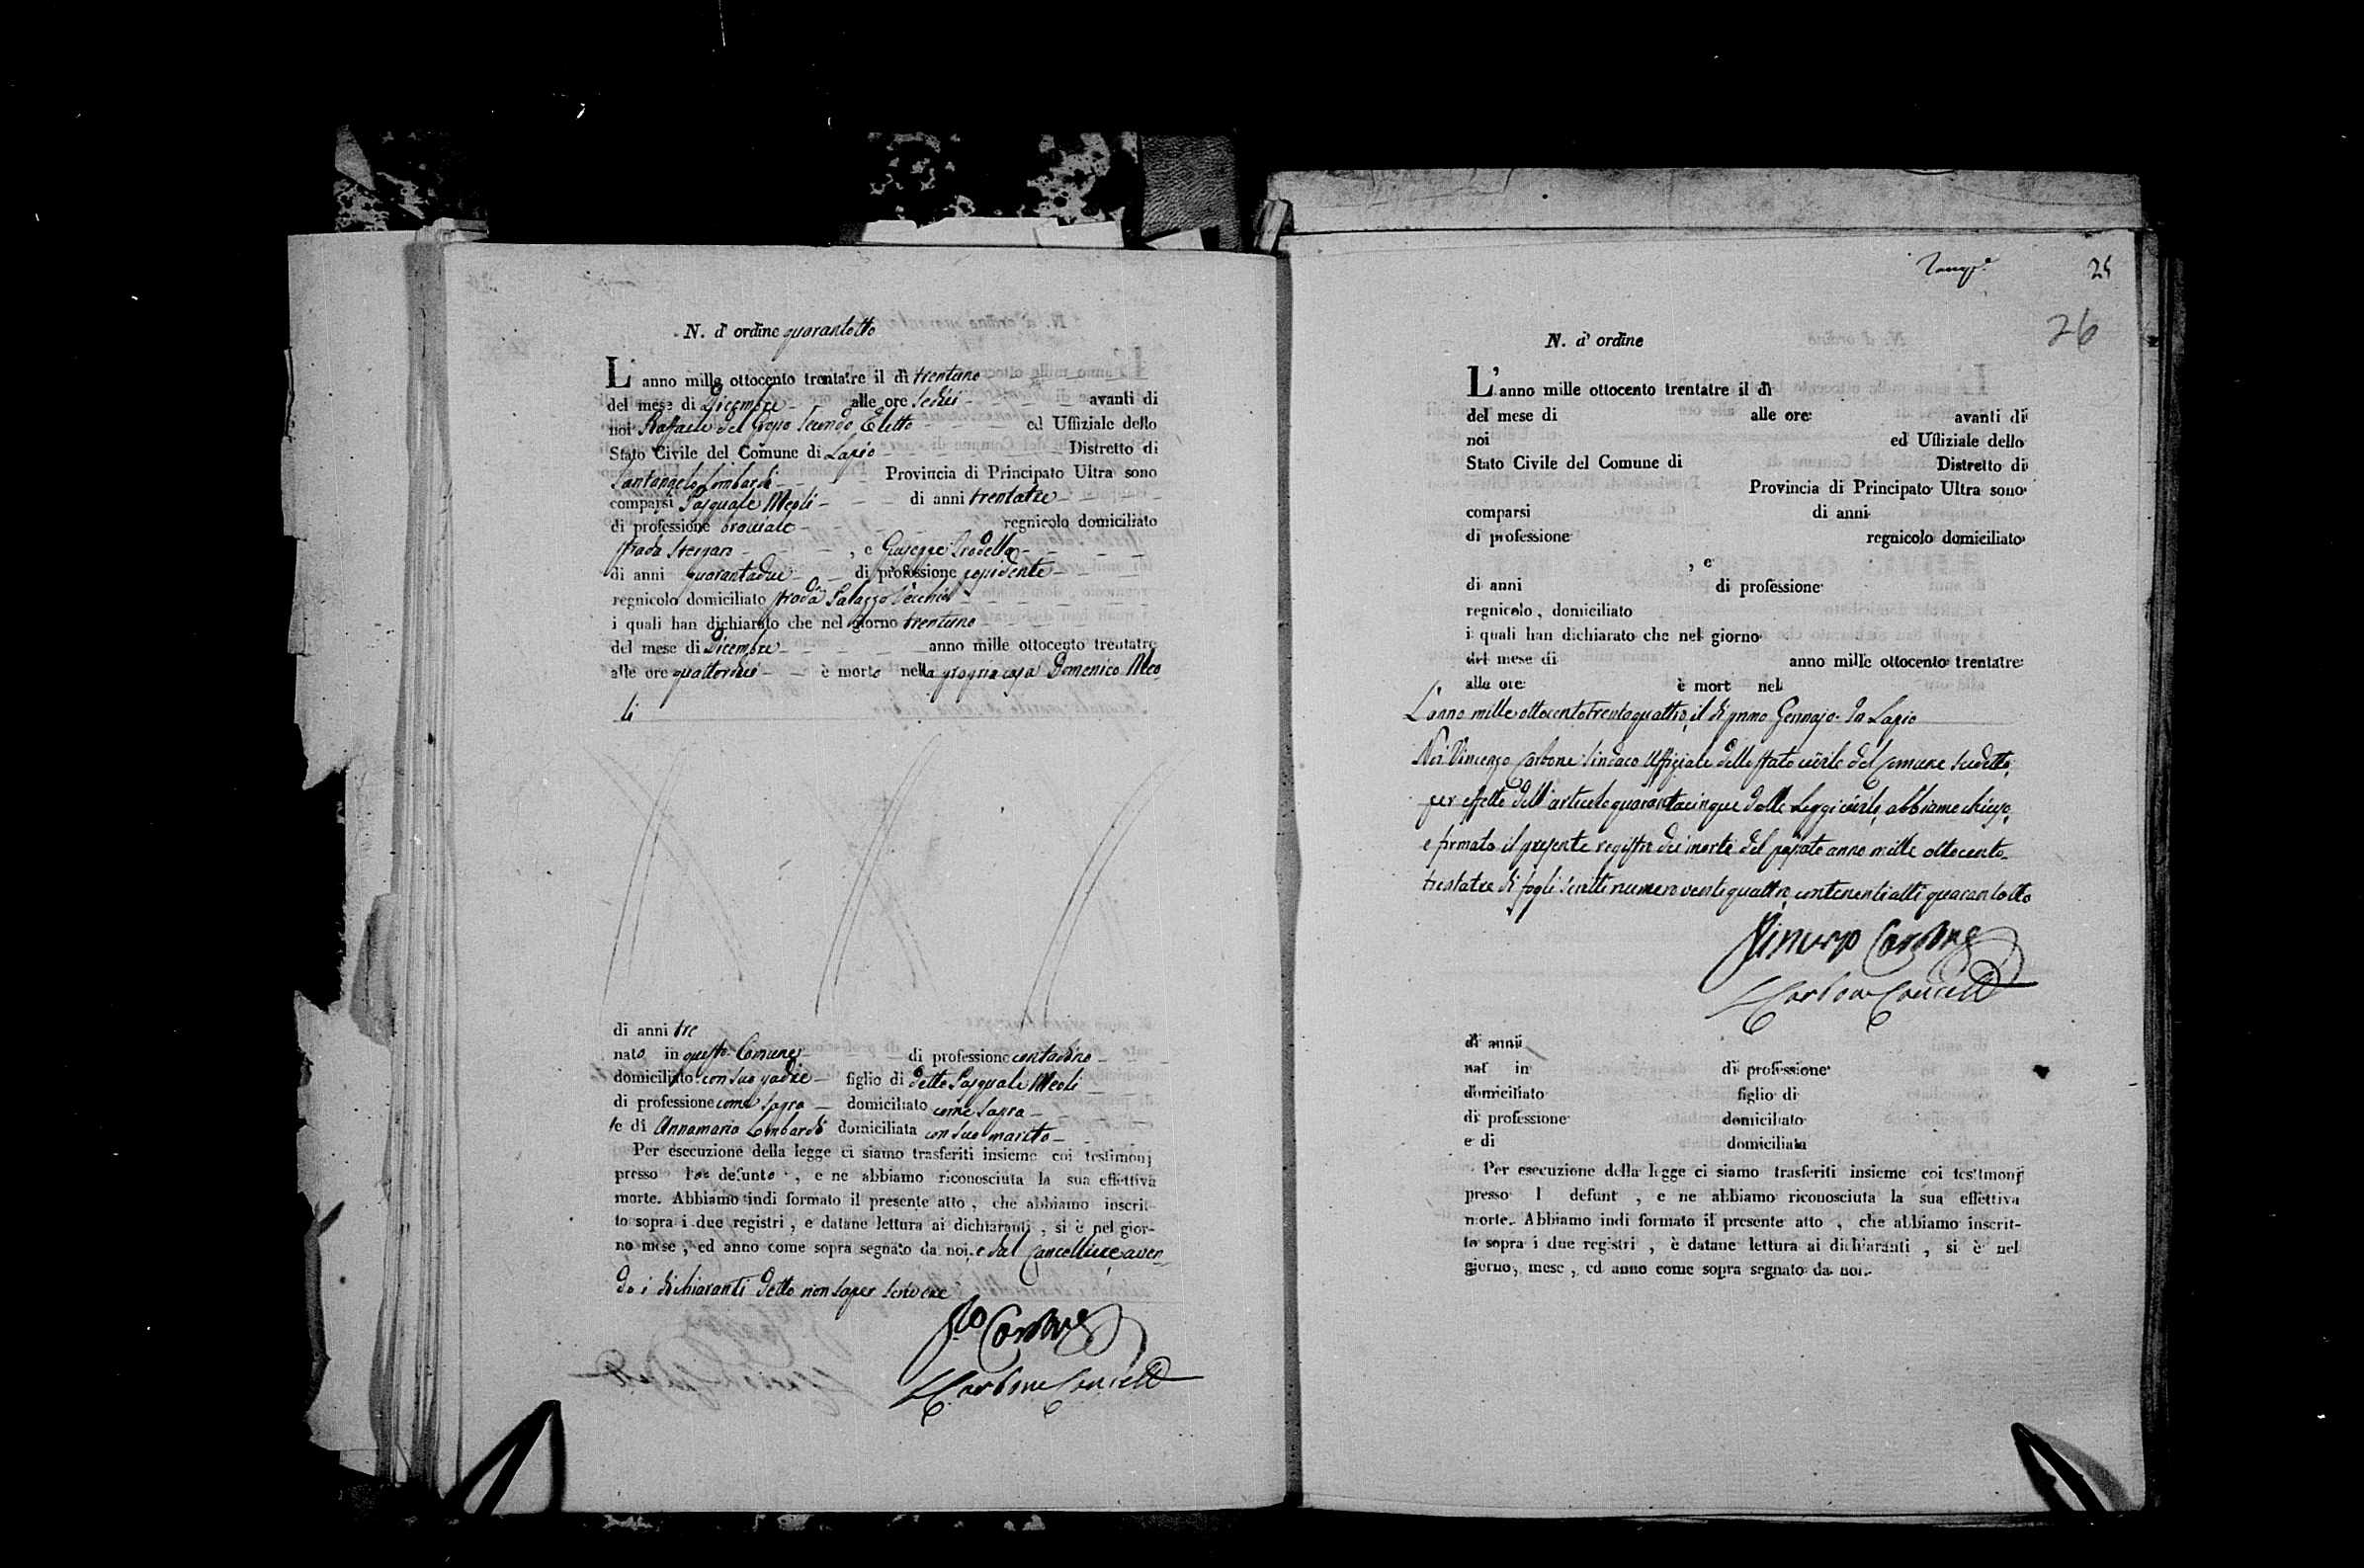 N. d' ordine quarantotto
L' anno mille ottocento trentatre il dì trentuno
del mese di Dicembre alle ore sedici avanti di
noi Raffaele del Grosso Secondo Eletto ed Uffiziale dello
Stato Civile del Comune di Lapio Distretto di
Santangelo Lombardi Provincia di Principato Ultra sono
comparsi Pasquale Meoli di anni trentatre
di professione bracciale regnicolo domiciliato
strada , e Giuseppe
di anni quarantadue di professione possidente
regnicolo domiciliato strada Palazzo Vecchio
i quali han dichiarato che nel giorno trentuno
del mese di Dicembre anno mille ottocento trentatre
alle ore quattordici è morto nella propria casa Domenico Meo
li
di anni tre
nato in questo Comune di professione contadino
domiciliato con suo padre figlio di detto Pasquale Meoli
di professione come sopra domiciliato come sopra
e di Annamaria Lombardi domiciliata con suo marito
Per esecuzione della legge ci siamo trasferiti insieme coi testimonj
presso defunto , e ne abbiamo riconosciuta la sua effettiva
morte. Abbiamo indi formato il presente atto , che abbiamo inscrit-
to sopra i due registri , e datane lettura ai dichiaranti , si è nel gior-
no mese , ed anno come sopra segnato da noi, e dal Cancelliere, aven
do i dichiaranti detto non saper scrivere
Carbone
Carbone Cancell
25
26
N. d' ordine
L' anno mille ottocento trentatre il dì
del mese di alle ore avanti di
noi ed Uffiziale dello
Stato Civile del Comune di Distretto di
Provincia di Principato Ultra sono
comparsi di anni
di professione regnicolo domiciliato
, e
di anni di professione
regnicolo , domiciliato
i quali han dichiarato che nel giorno
del mese di anno mille ottocento trentatre
alle ore è mort nel
L'anno mille ottocento trentaquattro, il dì primo Gennajo. In Lapio
Noi Vincenzo Carbone Sindaco Uffiziale dello stato civile del Comune sudetto,
per effetto dell'articolo quarantacinque delle Leggi civili, abbiamo chiuso,
e firmato il presente registro dei morti del passato anno mille ottocento
trentatre di fogli scritti numero ventiquattro, contenenti atti quarantotto
Vincenzo Carbone
Carbone Cancell
di anni
nat in di professione
domiciliato figlio di
di professione domiciliato
e di domiciliata
Per esecuzione della legge ci siamo trasferiti insieme coi testimonj
presso l defunt , e ne abbiamo riconosciuta la sua effettiva
morte. Abbiamo indi formato il presente atto , che abbiamo inscrit-
to sopra i due registri , è datane lettura ai dichiaranti , si è nel
giorno, mese , ed anno come sopra segnato da noi.